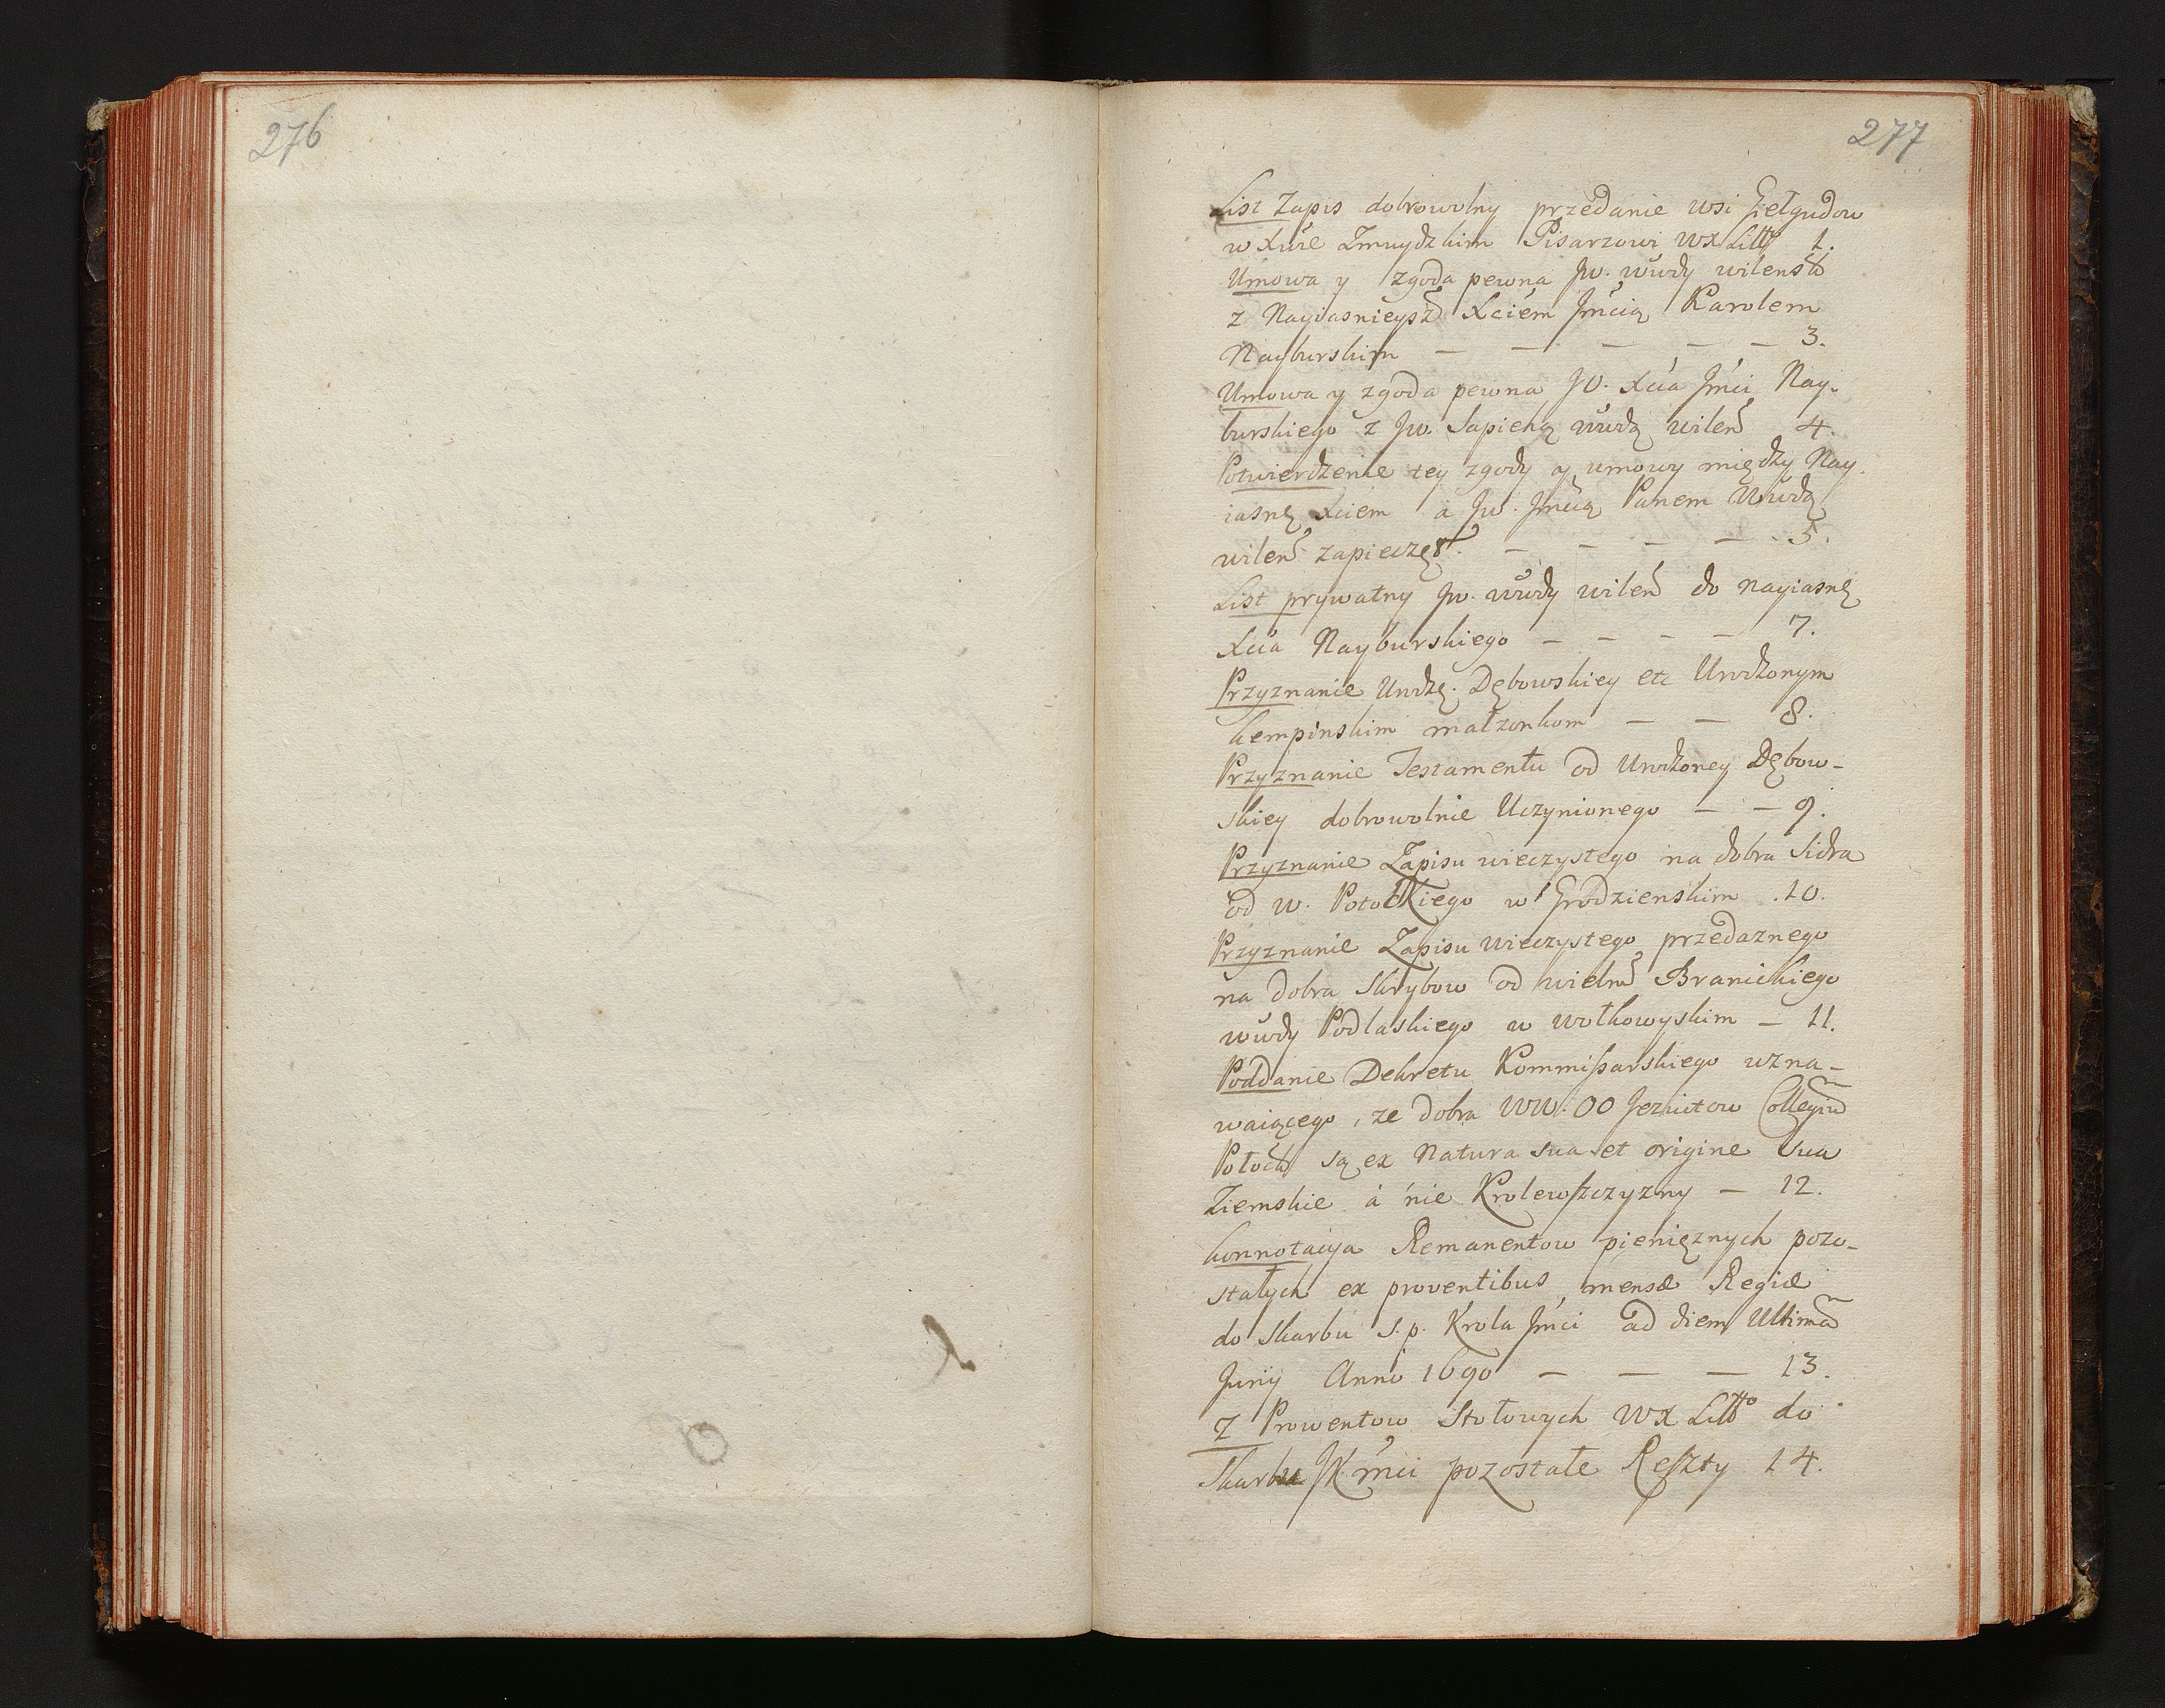 276
277
List Zapis dobrowolny przedanie wsi Giełgudow
w Xwie Zmuydzkim Pisarzowi WX Littº 1.
Umowa y zgoda pewna Jw. wwdy wilensº
z Nayiasnieysz Xciem Jmcią Karolem
Nayburskim — — — — — 3.
Umowa y zgoda pewna JO. Xcia Jmci Nay-
burskiego z Jw. Sapiehą wwdą wilen 4.
Potwierdzenie tey zgody y umowy między Nay.
iasnę Xciem a Jw. Jmcią Panem Wwdą
wilen zapieczęt. — — — — 5.
List prywatny Jw. wwdy wilen do nayiasnę
Xcia Nayburskiego — — — — 7.
Przyznanie Urodzę. Dębowskiey etc Urodzonym
kempinskim małzonkom — — 8.
Przyznanie Testamentu od Urodzoney Dębow-
skiey dobrowolnie Uczynionego — — 9.
Przyznanie Zapisu wieczystego na dobra Sidra
od w. Potockiego w Grodzienskim .10.
Przyznanie Zapisu wieczystego przedaznego
na dobra Skrybow od wielm Branickiego
wwdy Podlaskiego w wołkowyskim — 11.
Poddanie Dekretu Kommissarskiego uzna-
waiącego, ze dobra WW. OO Jezuitow Collegiu
Połock są ex Natura sua et origine sua
Ziemskie á nie Krolewszczyzny — 12.
konnotacya Remanentow pienięznych pozo-
stałych ex proventibus mensæ Regiæ
do skarbu s. p. Krola Jmci ad diem Ultima
Junij Anno 1690 — — — 13.
Z Prowentow Stołowych WX Littº do
Skarbu JK mci pozostałe Reszty 14.